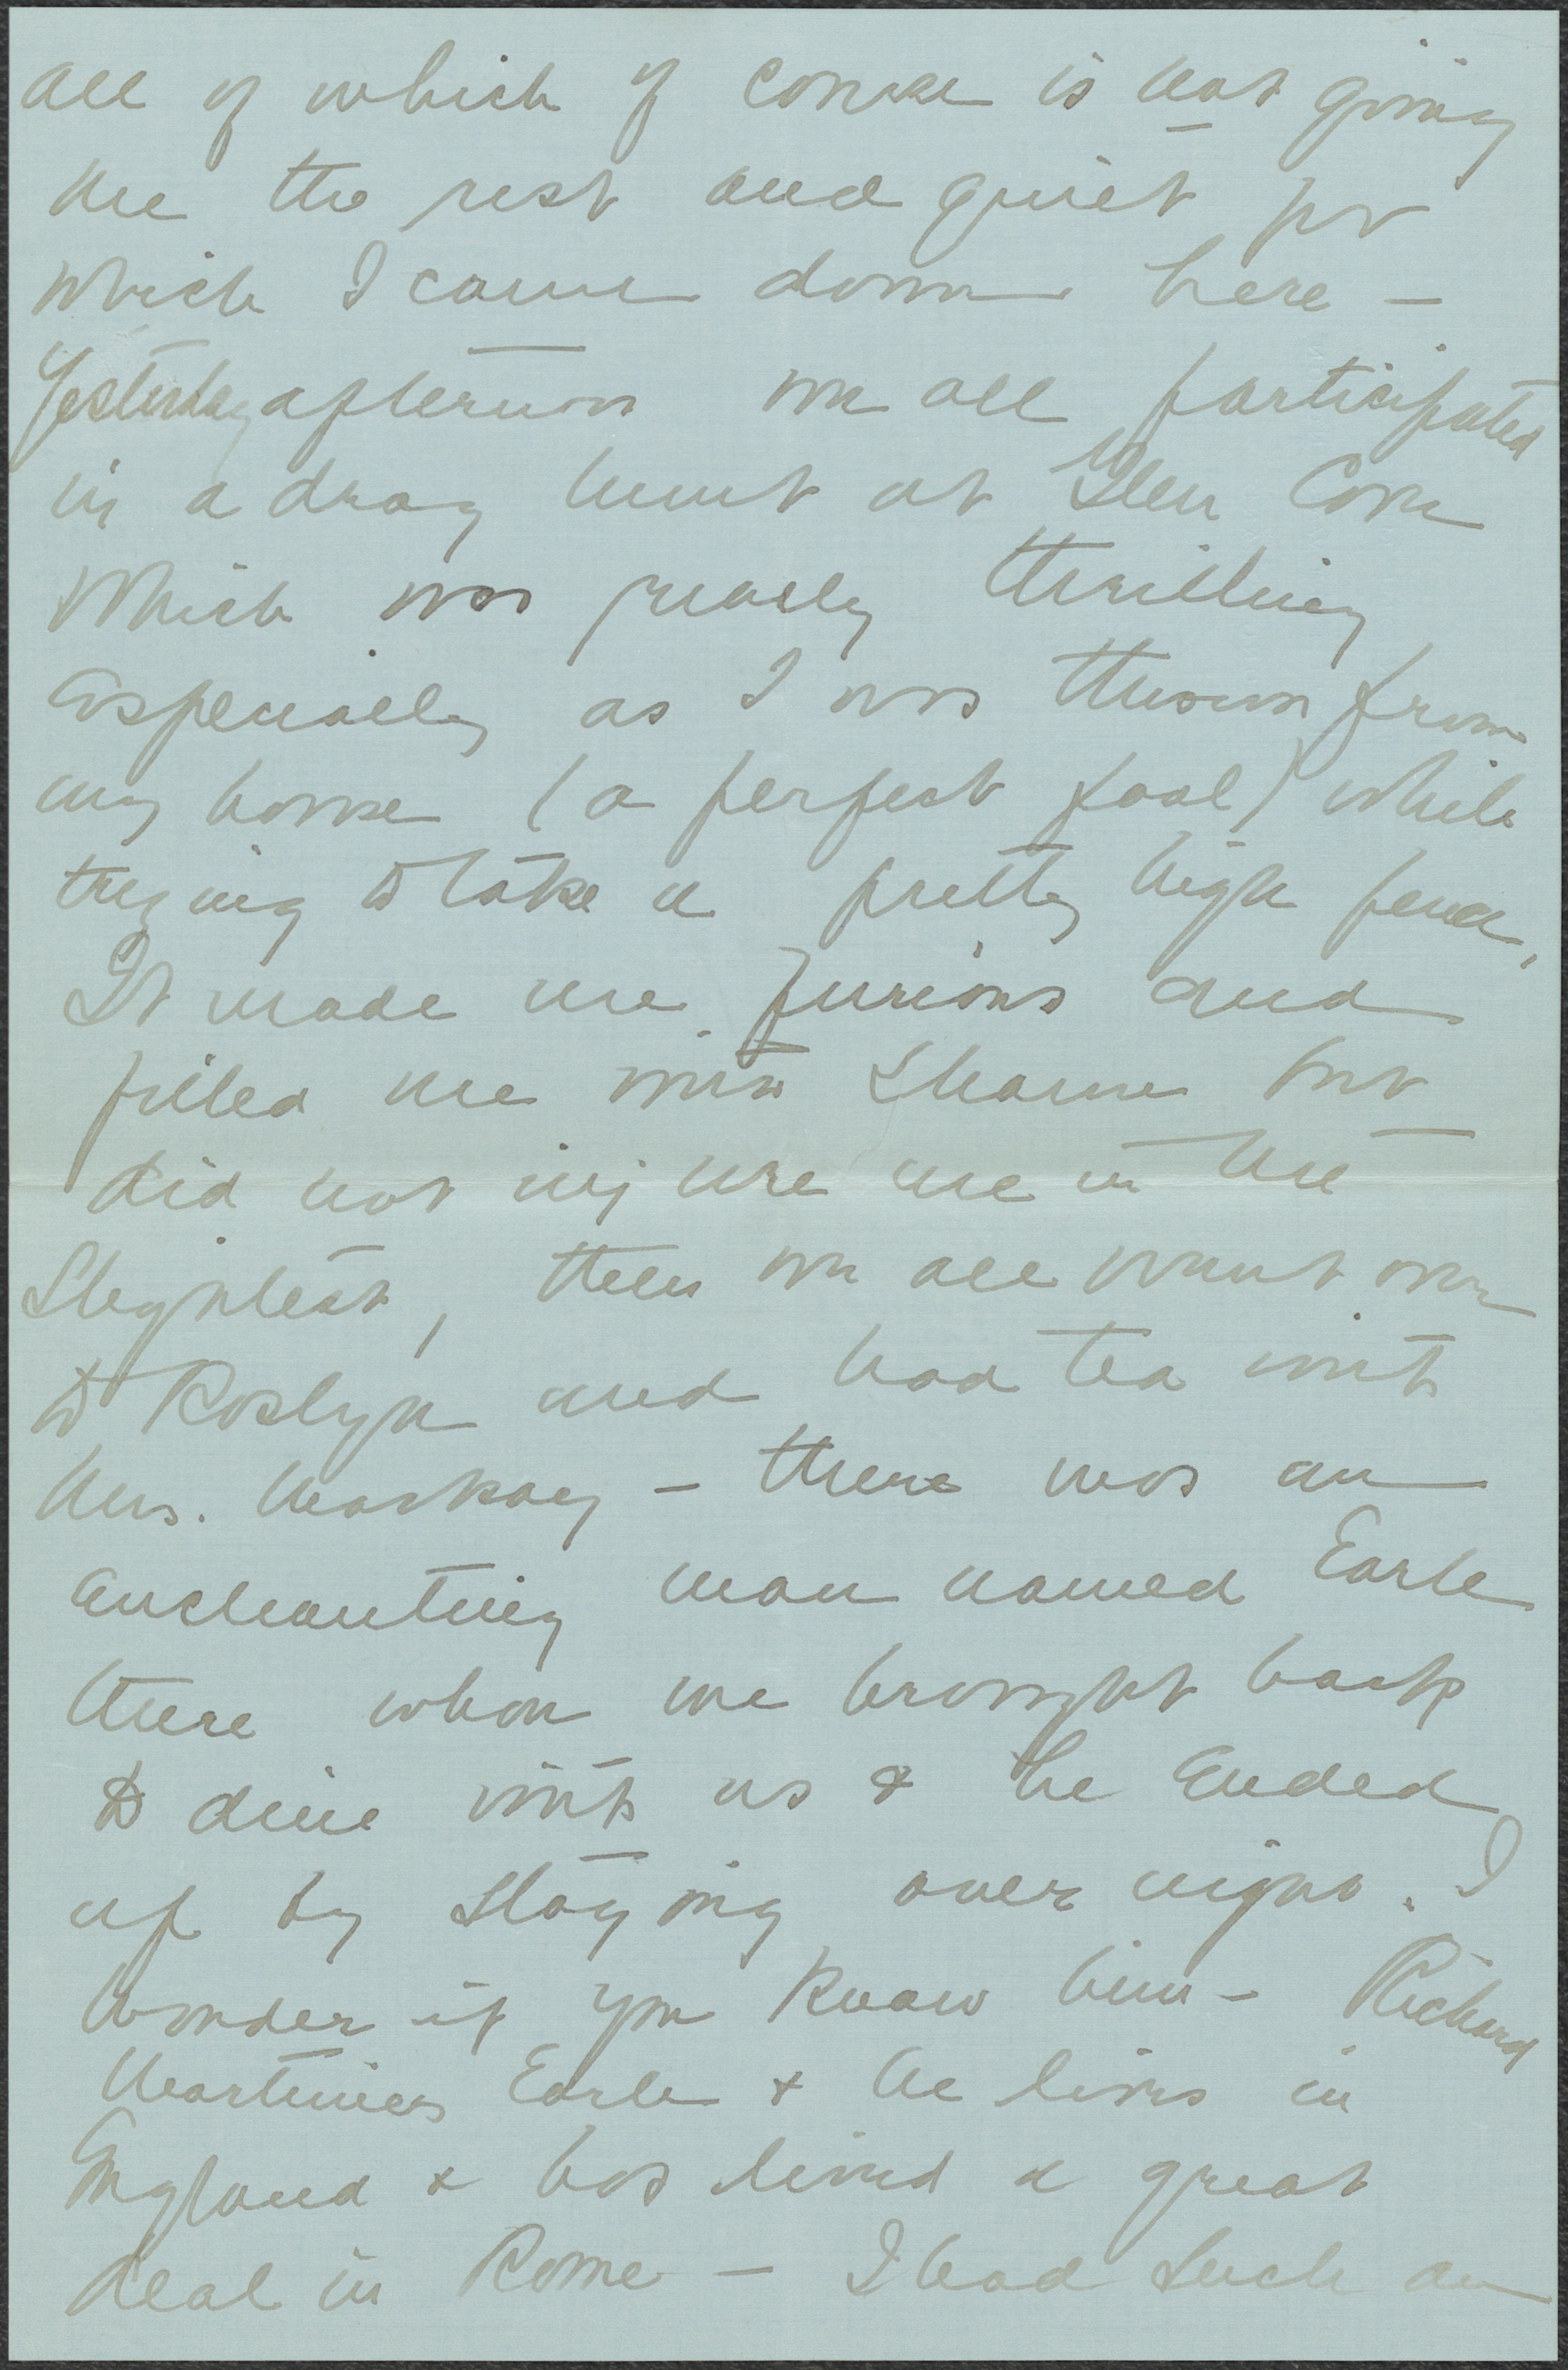 all of which of course is not giving
me the rest and quiet for
which I came down here —
Yesterday afternoon we all participated
in a drag hunt at Glen Cove
which was really thrilling
especially as I was thrown from
my horse (a perfect fool) while
trying to take a pretty high fence,
It made me furious and
filled me with shame but
did not injure me in the
slightest, then we all went over
to Roslyn and had tea with
Mrs. Mackay — there was an
enchanting man named Earle
there whom we brought back
to dine with us & he ended
up by staying over night. I
wonder if you know him — Richard
Earle & he lives in
England & has lived a great
deal in Rome — I had such an